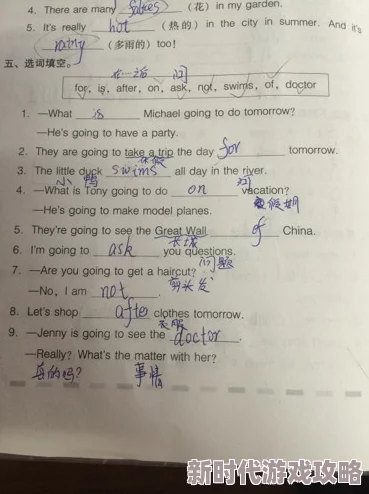 4. There are many ______ (花) in my garden.
5. It's really hot (热的) in the city in summer. And it's
rainy (多雨的) too!
五、选词填空。
在…之后 问
for, is, after, on, ask, not, swims, of, doctor
1. —What is Michael going to do tomorrow?
—He's going to have a party.
2. They are going to take a trip the day for tomorrow.
休假
3. The little duck swims all day in the river.
小 鸭
4. —What is Tony going to do on vacation?
假期
—He's going to make model planes.
5. They're going to see the Great Wall of China.
长城
6. I'm going to ask you questions.
问题
7. —Are you going to get a haircut?
剪头发
—No, I am not.
8. Let's shop after clothes tomorrow.
衣服
9. —Jenny is going to see the doctor.
—Really? What's the matter with her?
真的吗? 事情
新时代游戏攻略